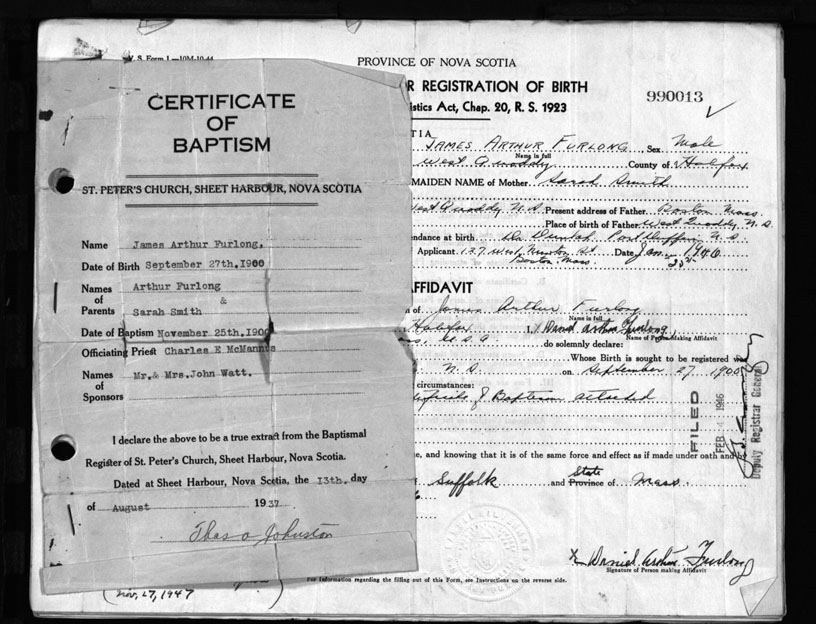 V. S. Form 1.—10M-10-44
PROVINCE OF NOVA SCOTIA
R REGISTRATION OF BIRTH
istics Act, Chap. 20, R. S. 1923
990013
TIA
JAMES ARTHUR FURLONG Sex Male
Name in full
West Quoddy County of Halifax
MAIDEN NAME of Mother Sarah Smith
West Quoddy N.S. Present address of Father Boston Mass.
Place of birth of Father West Quoddy N.S.
endance at birth Dr. Port Dufferin N.S.
Applicant 137 West Newton St Date Jan 1946
Boston Mass.
CERTIFICATE
OF
BAPTISM
ST. PETER'S CHURCH, SHEET HARBOUR, NOVA SCOTIA
Name James Arthur Furlong.
Date of Birth September 27th.1900
Names Arthur Furlong
of &
Parents Sarah Smith
Date of Baptism November 25th.1900
Officiating Priest Charles E McMannus
Names Mr.& Mrs.John Watt.
of
Sponsors
I declare the above to be a true extract from the Baptismal
Register of St. Peter's Church, Sheet Harbour, Nova Scotia.
Dated at Sheet Harbour, Nova Scotia, the 13th. day
of August 1937
Thos O Johnston
AFFIDAVIT
n of James Arthur Furlong
Name in full
Halifax I, Daniel Arthur Furlong,
Name of Person Making Affidavit
U.S.A. do solemnly declare:
Whose Birth is sought to be registered was
N.S. on September 27 1900
circumstances:
of Baptism attached
FILED
FEB 4 1946
Deputy Registrar General
e, and knowing that it is of the same force and effect as if made under oath and by
Suffolk and Province of State Mass.
x Daniel Arthur Furlong
Signature of Person making Affidavit
For information regarding the filling out of this Form, see Instructions on the reverse side.
(Nov. 27, 1947